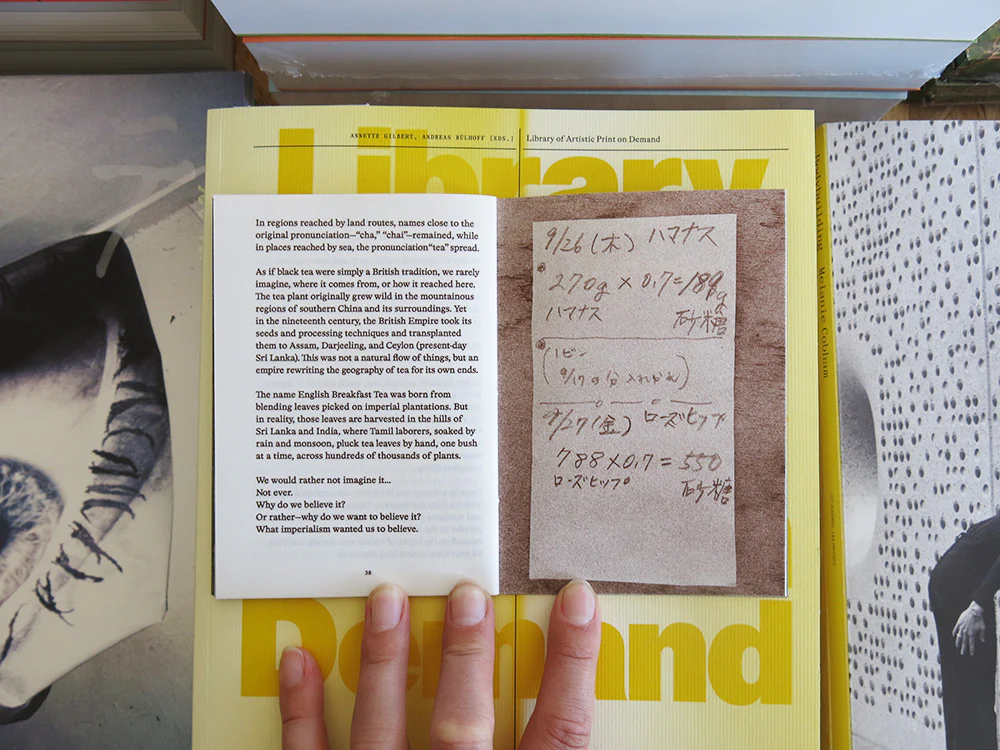 ANNETTE GILBERT, ANDREAS BÜLHOFF [EDS.]
Library of Artistic Print on Demand
Library
In regions reached by land routes, names close to the
original pronunciation—“cha,” “chai”—remained, while
in places reached by sea, the pronunciation“tea” spread.
As if black tea were simply a British tradition, we rarely
imagine, where it comes from, or how it reached here.
The tea plant originally grew wild in the mountainous
regions of southern China and its surroundings. Yet
in the nineteenth century, the British Empire took its
seeds and processing techniques and transplanted
them to Assam, Darjeeling, and Ceylon (present-day
Sri Lanka). This was not a natural flow of things, but an
empire rewriting the geography of tea for its own ends.
The name English Breakfast Tea was born from
blending leaves picked on imperial plantations. But
in reality, those leaves are harvested in the hills of
Sri Lanka and India, where Tamil laborers, soaked by
rain and monsoon, pluck tea leaves by hand, one bush
at a time, across hundreds of thousands of plants.
We would rather not imagine it...
Not ever.
Why do we believe it?
Or rather—why do we want to believe it?
What imperialism wanted us to believe.
38
9/26(木) ハマナス
270g×0.7=189g
ハマナス 砂糖
(1ビン
9/17の分入れかえ)
9/27(金) ローズヒップ
788×0.7=550
ローズヒップ 砂糖
Demand
Bodybuilding Melanie